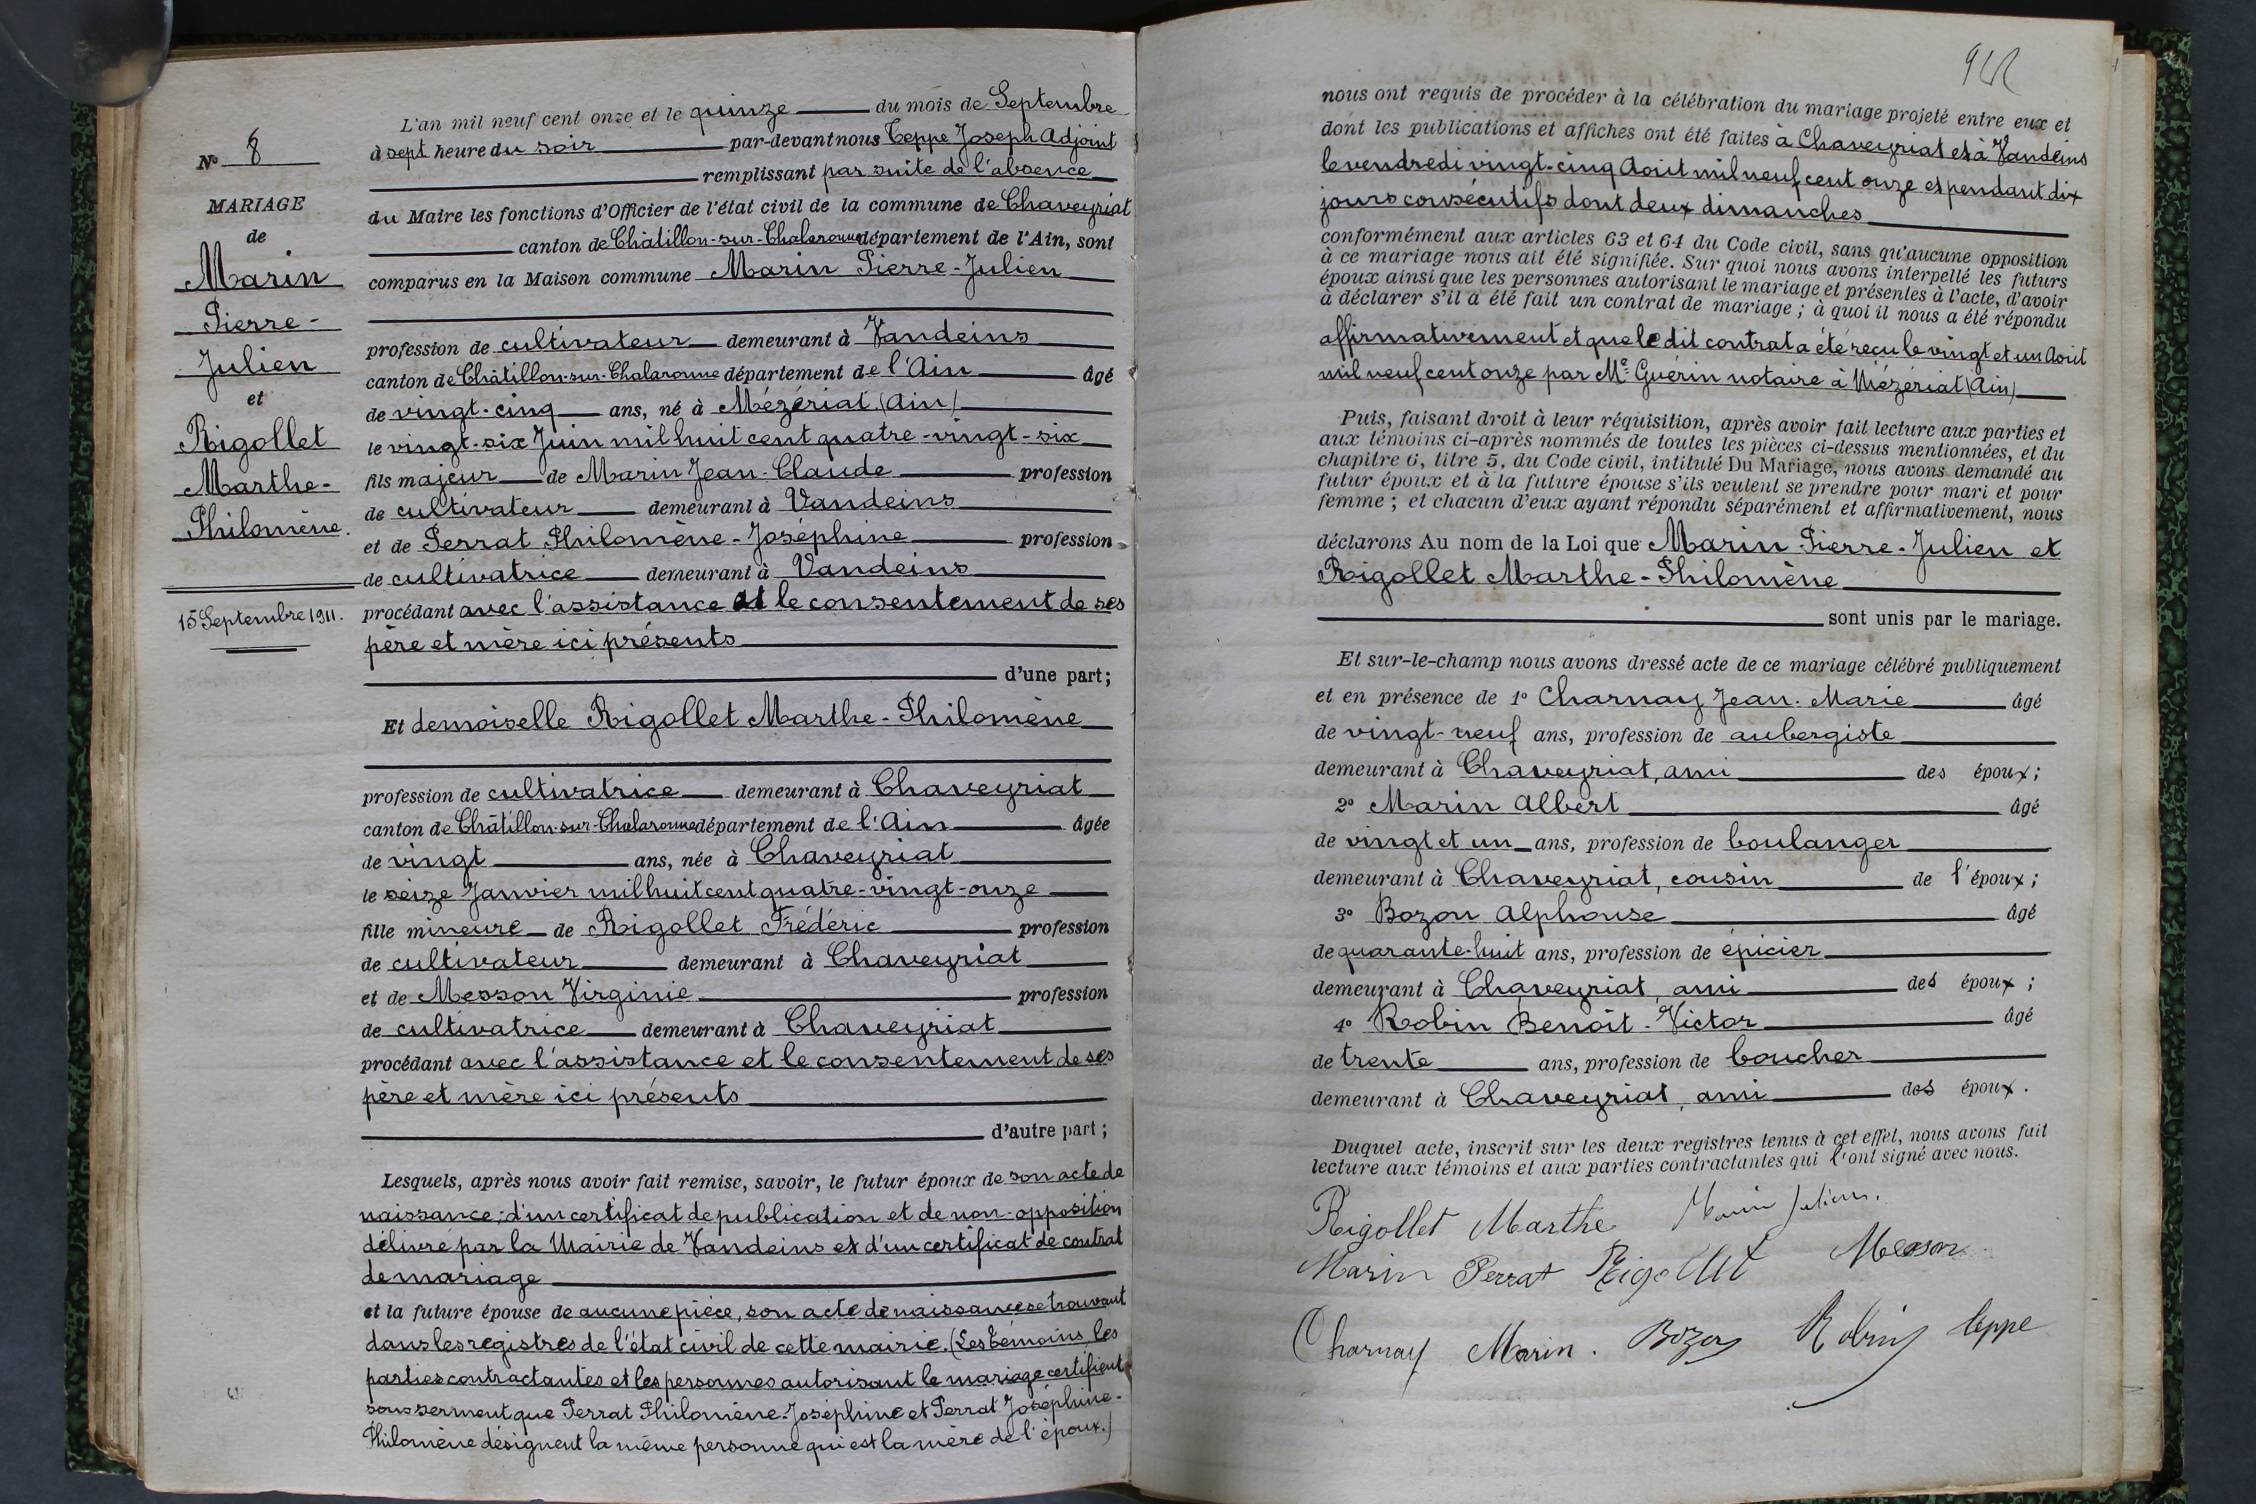 N° 8
MARIAGE
de
Marin
Pierre-
Julien
et
Rigollet
Marthe-
Philomène.
15 Septembre 1911.
L'an mil neuf cent onze et le quinze du mois de Septembre
à sept heure du soir par-devant nous Teppe Joseph Adjoint
remplissant par suite de l'absence
du Maire les fonctions d'Officier de l'état civil de la commune de Chaveyriat
canton de Châtillon-sur-Chalaronne département de l'Ain, sont
comparus en la Maison commune Marin Pierre-Julien
profession de cultivateur demeurant à Vandeins
canton de Châtillon-sur-Chalaronne département de l'Ain âgé
de vingt-cinq ans, né à Mézériat (Ain)
le vingt-six Juin mil huit cent quatre-vingt-six
fils majeur de Marin Jean-Claude profession
de cultivateur demeurant à Vandeins
et de Perrat Philomène-Joséphine profession
de cultivatrice demeurant à Vandeins
procédant avec l'assistance et le consentement de ses
père et mère ici présents
d'une part;
Et demoiselle Rigollet Marthe-Philomène
profession de cultivatrice demeurant à Chaveyriat
canton de Châtillon-sur-Chalaronne département de l'Ain âgée
de vingt ans, née à Chaveyriat
le seize Janvier mil huit cent quatre-vingt-onze
fille mineure de Rigollet Frédéric profession
de cultivateur demeurant à Chaveyriat
et de Messon Virginie profession
de cultivatrice demeurant à Chaveyriat
procédant avec l'assistance et le consentement de ses
père et mère ici présents
d'autre part;
Lesquels, après nous avoir fait remise, savoir, le futur époux de son acte de
naissance; d'un certificat de publication et de non-opposition
délivré par la Mairie de Vandeins et d'un certificat de contrat
de mariage
et la future épouse de aucune pièce, son acte de naissance se trouvant
dans les registres de l'état civil de cette mairie. (Les témoins, les
parties contractantes et les personnes autorisant le mariage certifient
sous serment que Perrat Philomène-Joséphine et Perrat Joséphine-
Philomène désignent la même personne qui est la mère de l'époux.)
nous ont requis de procéder à la célébration du mariage projeté entre eux et
dont les publications et affiches ont été faites à Chaveyriat et à Vandeins
le vendredi vingt-cinq Août mil neuf cent onze et pendant dix
jours consécutifs dont deux dimanches
conformément aux articles 63 et 64 du Code civil, sans qu'aucune opposition
à ce mariage nous ait été signifiée. Sur quoi nous avons interpellé les futurs
époux ainsi que les personnes autorisant le mariage et présentes à l'acte, d'avoir
à déclarer s'il a été fait un contrat de mariage; à quoi il nous a été répondu
affirmativement et que le dit contrat a été reçu le vingt et un Août
mil neuf cent onze par Me Guérin notaire à Mézériat (Ain)
Puis, faisant droit à leur réquisition, après avoir fait lecture aux parties et
aux témoins ci-après nommés de toutes les pièces ci-dessus mentionnées, et du
chapitre 6, titre 5, du Code civil, intitulé Du Mariage, nous avons demandé au
futur époux et à la future épouse s'ils veulent se prendre pour mari et pour
femme; et chacun d'eux ayant répondu séparément et affirmativement, nous
déclarons Au nom de la Loi que Marin Pierre-Julien et
Rigollet Marthe-Philomène
sont unis par le mariage.
Et sur-le-champ nous avons dressé acte de ce mariage célébré publiquement
et en présence de 1° Charnay Jean-Marie âgé
de vingt-neuf ans, profession de aubergiste
demeurant à Chaveyriat, ami des époux;
2° Marin Albert âgé
de vingt et un ans, profession de boulanger
demeurant à Chaveyriat, cousin de l'époux;
3° Bozon Alphonse âgé
de quarante-huit ans, profession de épicier
demeurant à Chaveyriat, ami des époux;
4° Robin Benoît-Victor âgé
de trente ans, profession de boucher
demeurant à Chaveyriat, ami des époux.
Duquel acte, inscrit sur les deux registres tenus à cet effet, nous avons fait
lecture aux témoins et aux parties contractantes qui l'ont signé avec nous.
Rigollet Marthe Marin Julien.
Marin Perrat Rigollet Messon
Charnay Marin. Bozon Robin Teppe